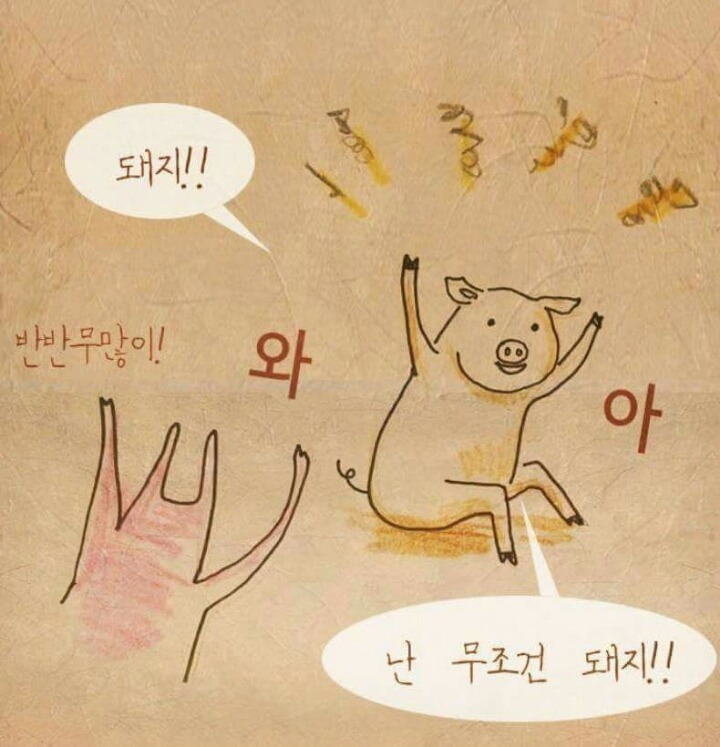 돼지!!
반반무많이!
와
아
난 무조건 돼지!!